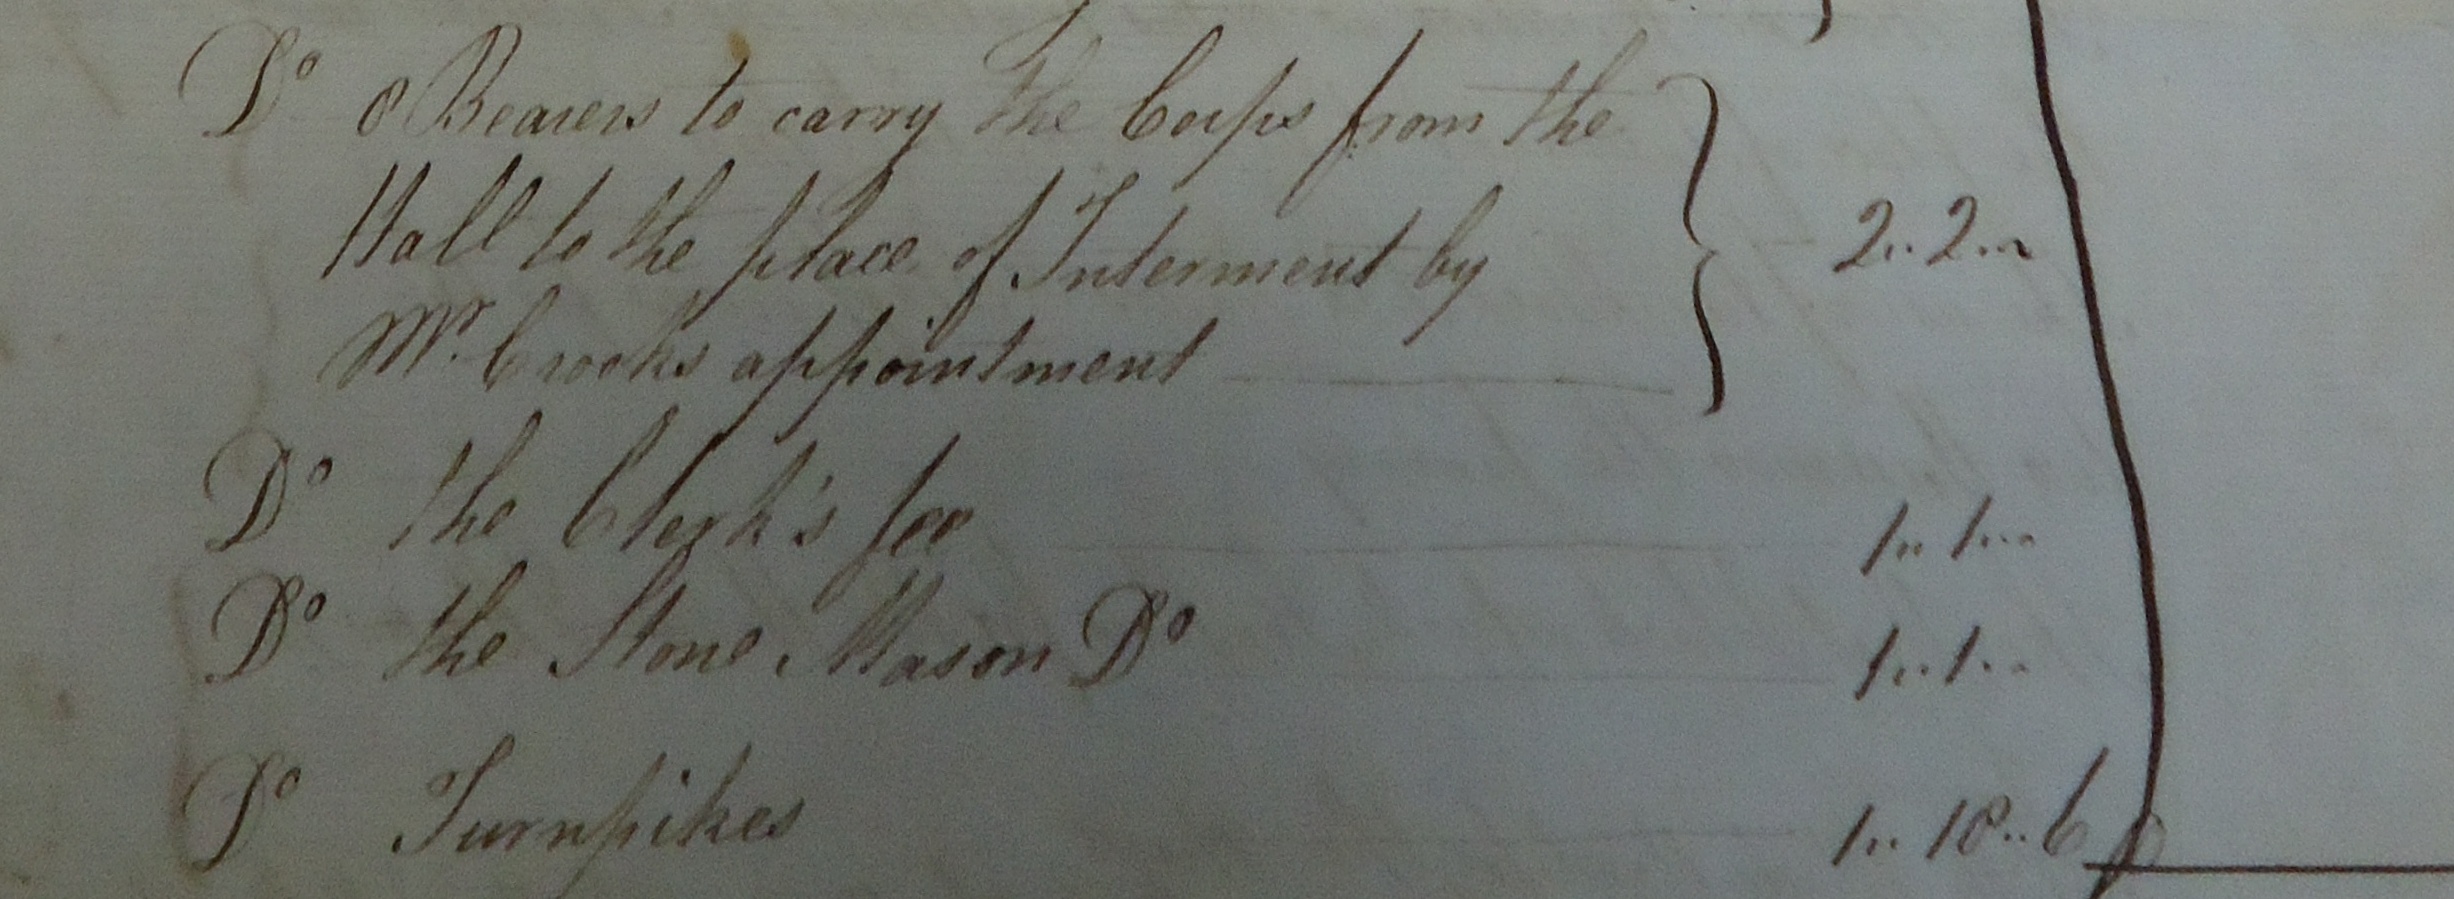 Do 8 Bearers to carry the Corps from the
Hall to the place of Interment by
Mr. Crooks appointment 2..2..
Do the Clerk's fee 1..1..
Do the Stone Mason Do 1..1..
Do Turnpikes 1..18..6